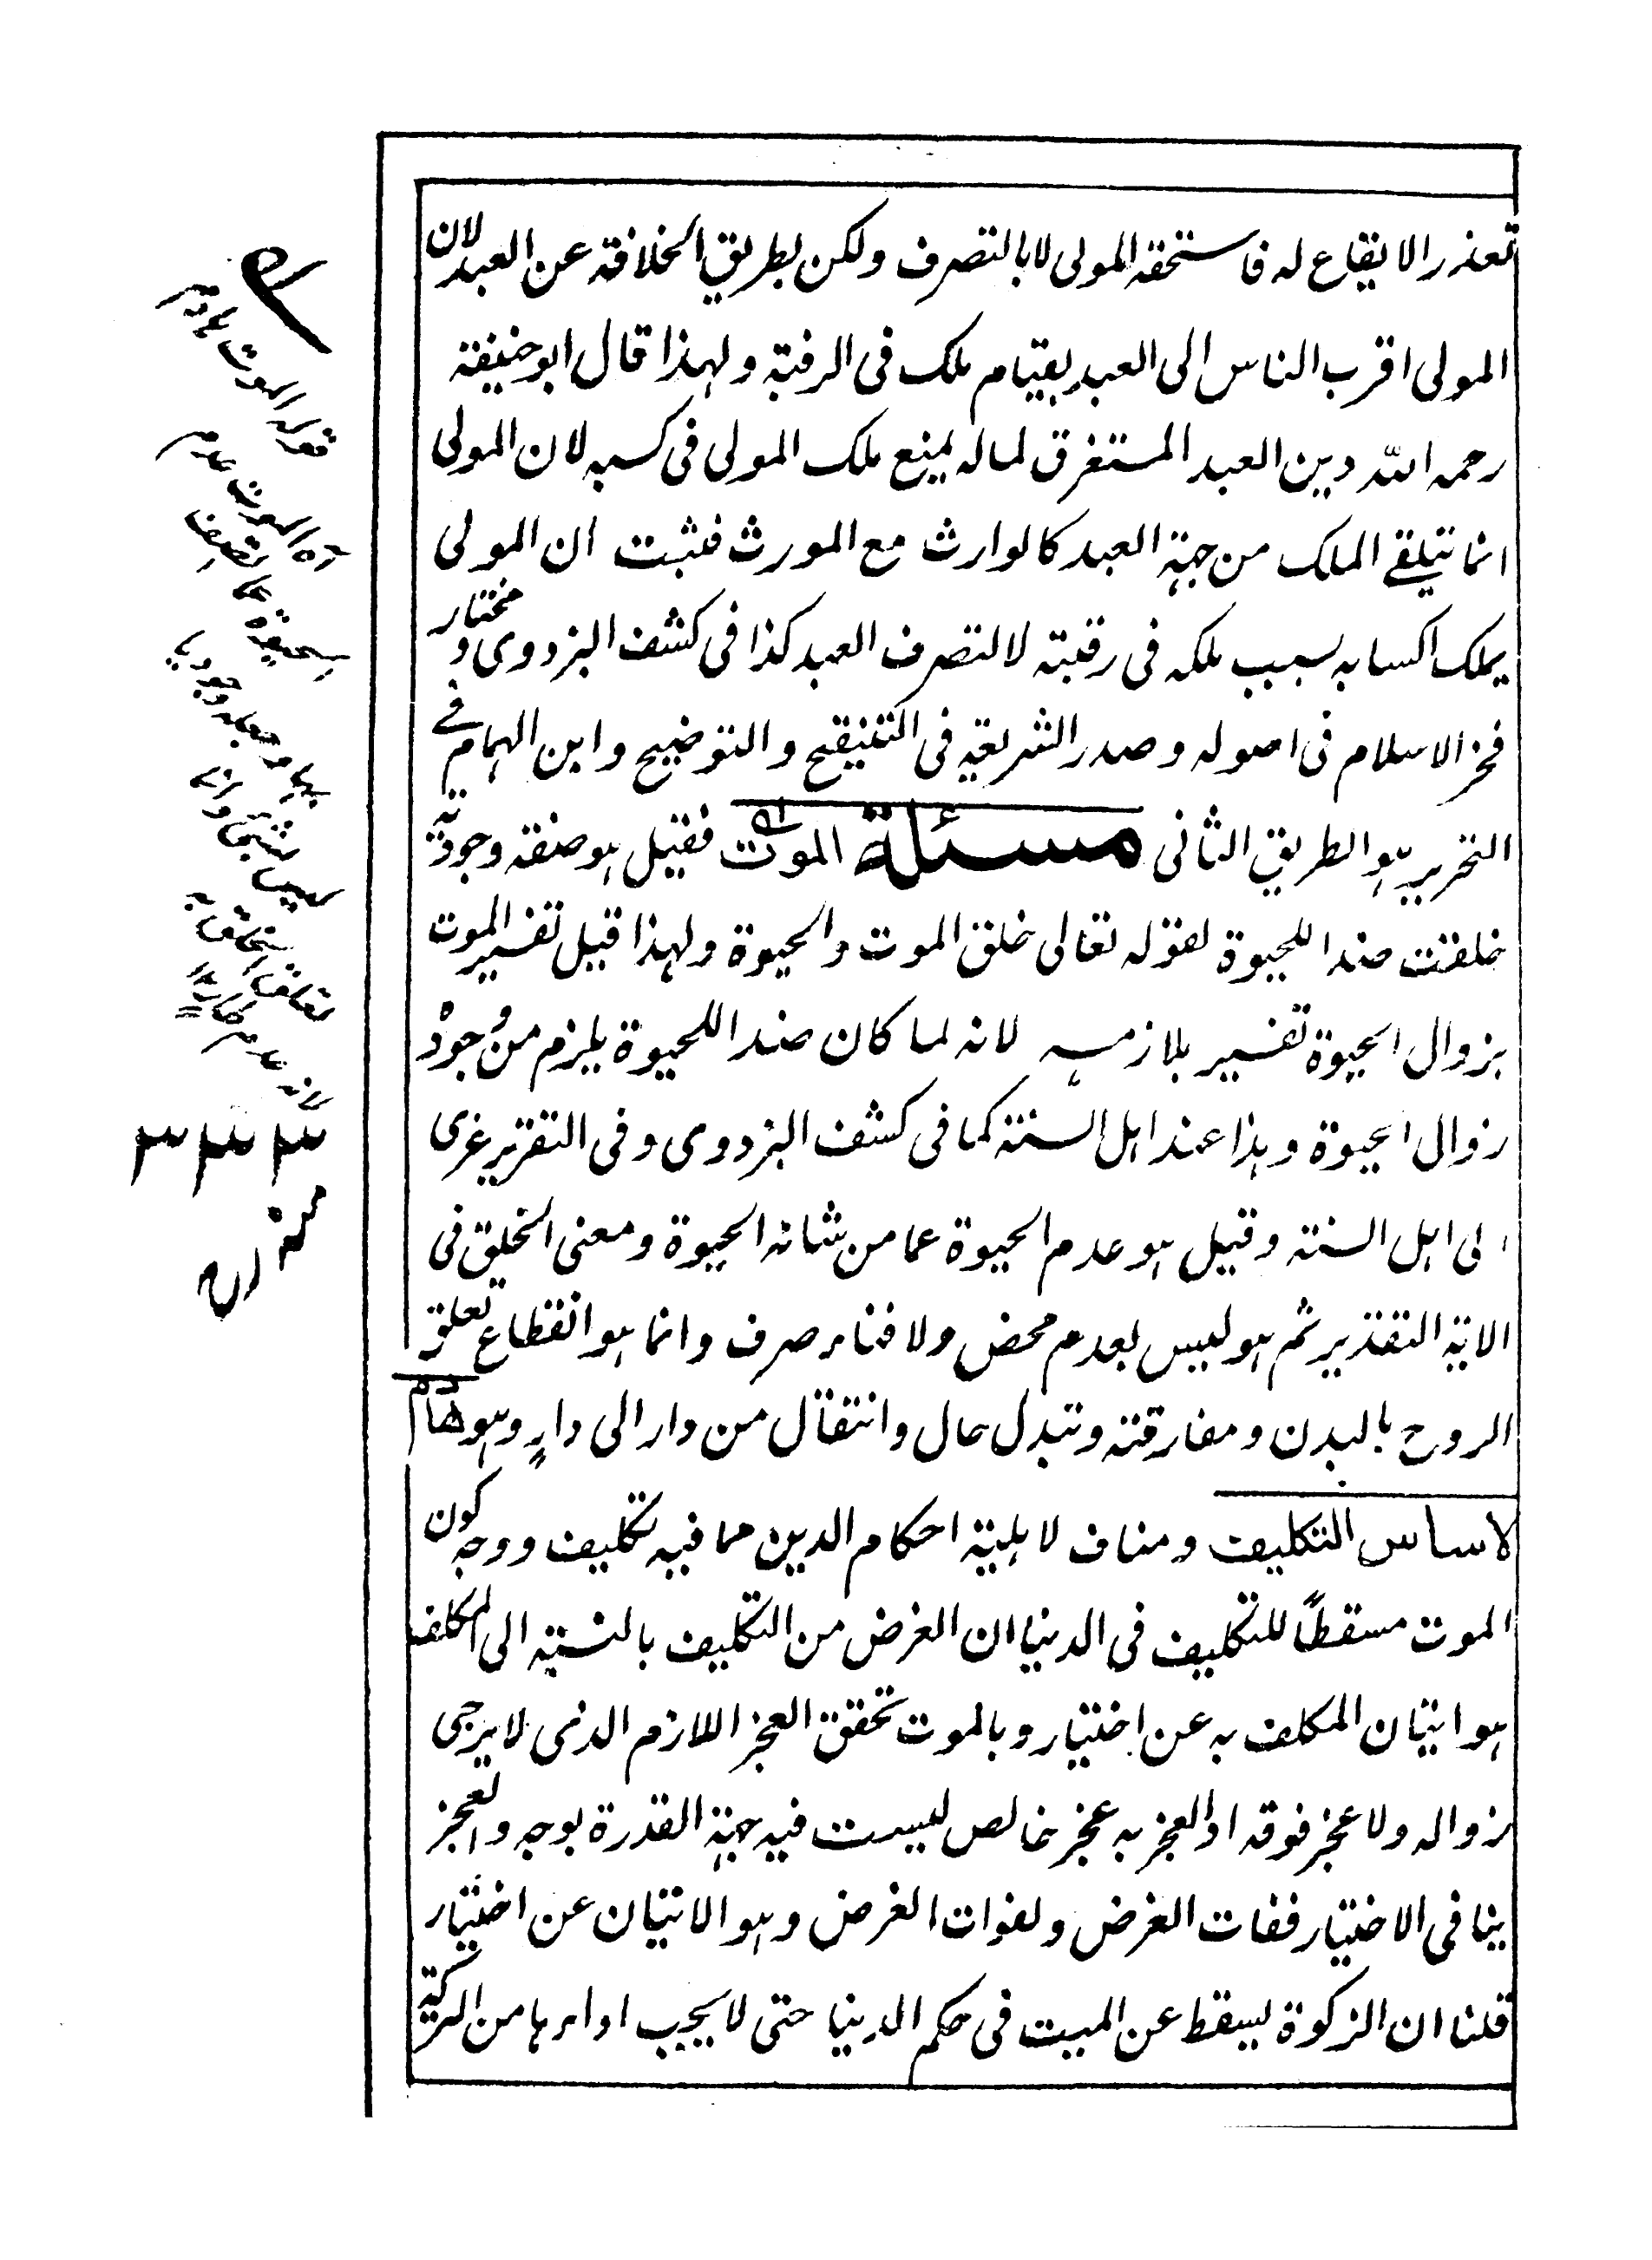 تعذر الايقاع له فاستحقه المولى لا بالتصرف ولكن بطريق الخلافة عن العبد لان
المولى اقرب الناس الى العبد بقيام ملك فى الرقبة ولهذا قال ابو حنيفة
رحمه الله دين العبد المستغرق لماله يمنع ملك المولى فى كسبه لان المولى
انما يتلقے الملك من جهة العبد كالوارث مع المورث فثبت ان المولى
يملك اكسابه بسبب ملكه فى رقبته لا لتصرف العبد كذا فى كشف البزدوى و مختار
فخر الاسلام فى اصوله وصدر الشريعة فى التنقيح والتوضيح وابن الهمام فے
التحرير هو الطريق الثانى مسئلة الموت فقيل هو صفة وجودية
خلقت ضدا للحيوة لقوله تعالى خلق الموت والحيوة ولهذا قيل تفسير الموت
بزوال الحيوة تفسير بلازمه لانه لما كان ضدا للحيوة يلزم من وجوده
زوال الحيوة وهذا عند اهل السنة كما فى كشف البزدوى وفى التقرير عزى
الى اهل السنة وقيل هو عدم الحيوة عما من شانه الحيوة ومعنى الخلق فى
الاية التقدير ثم هو ليس بعدم محض ولا فناء صرف وانما هو انقطاع تعلق
الروح بالبدن ومفارقته وتبدل حال وانتقال من دار الى دارٍ وهو هادم
لاساس التكليف ومناف لاهلية احكام الدين مما فيه تكليف ووجه كون
الموت مسقطًا للتكليف فى الدنيا ان الغرض من التكليف بالنسبة الى المكلف
هو اتيان المكلف به عن اختيار وبالموت تحقق العجز اللازم الذى لا يرجى
زواله ولا عجز فوقه اذ العجز به عجز خالص ليست فيه جهة القدرة بوجه والعجز
ينافى الاختيار ففات الغرض ولفوات الغرض وهو الاتيان عن اختيار
قلنا ان الزكوة يسقط عن الميت فى حكم الدنيا حتى لا يجب اداءها من التركة
قوله الموت